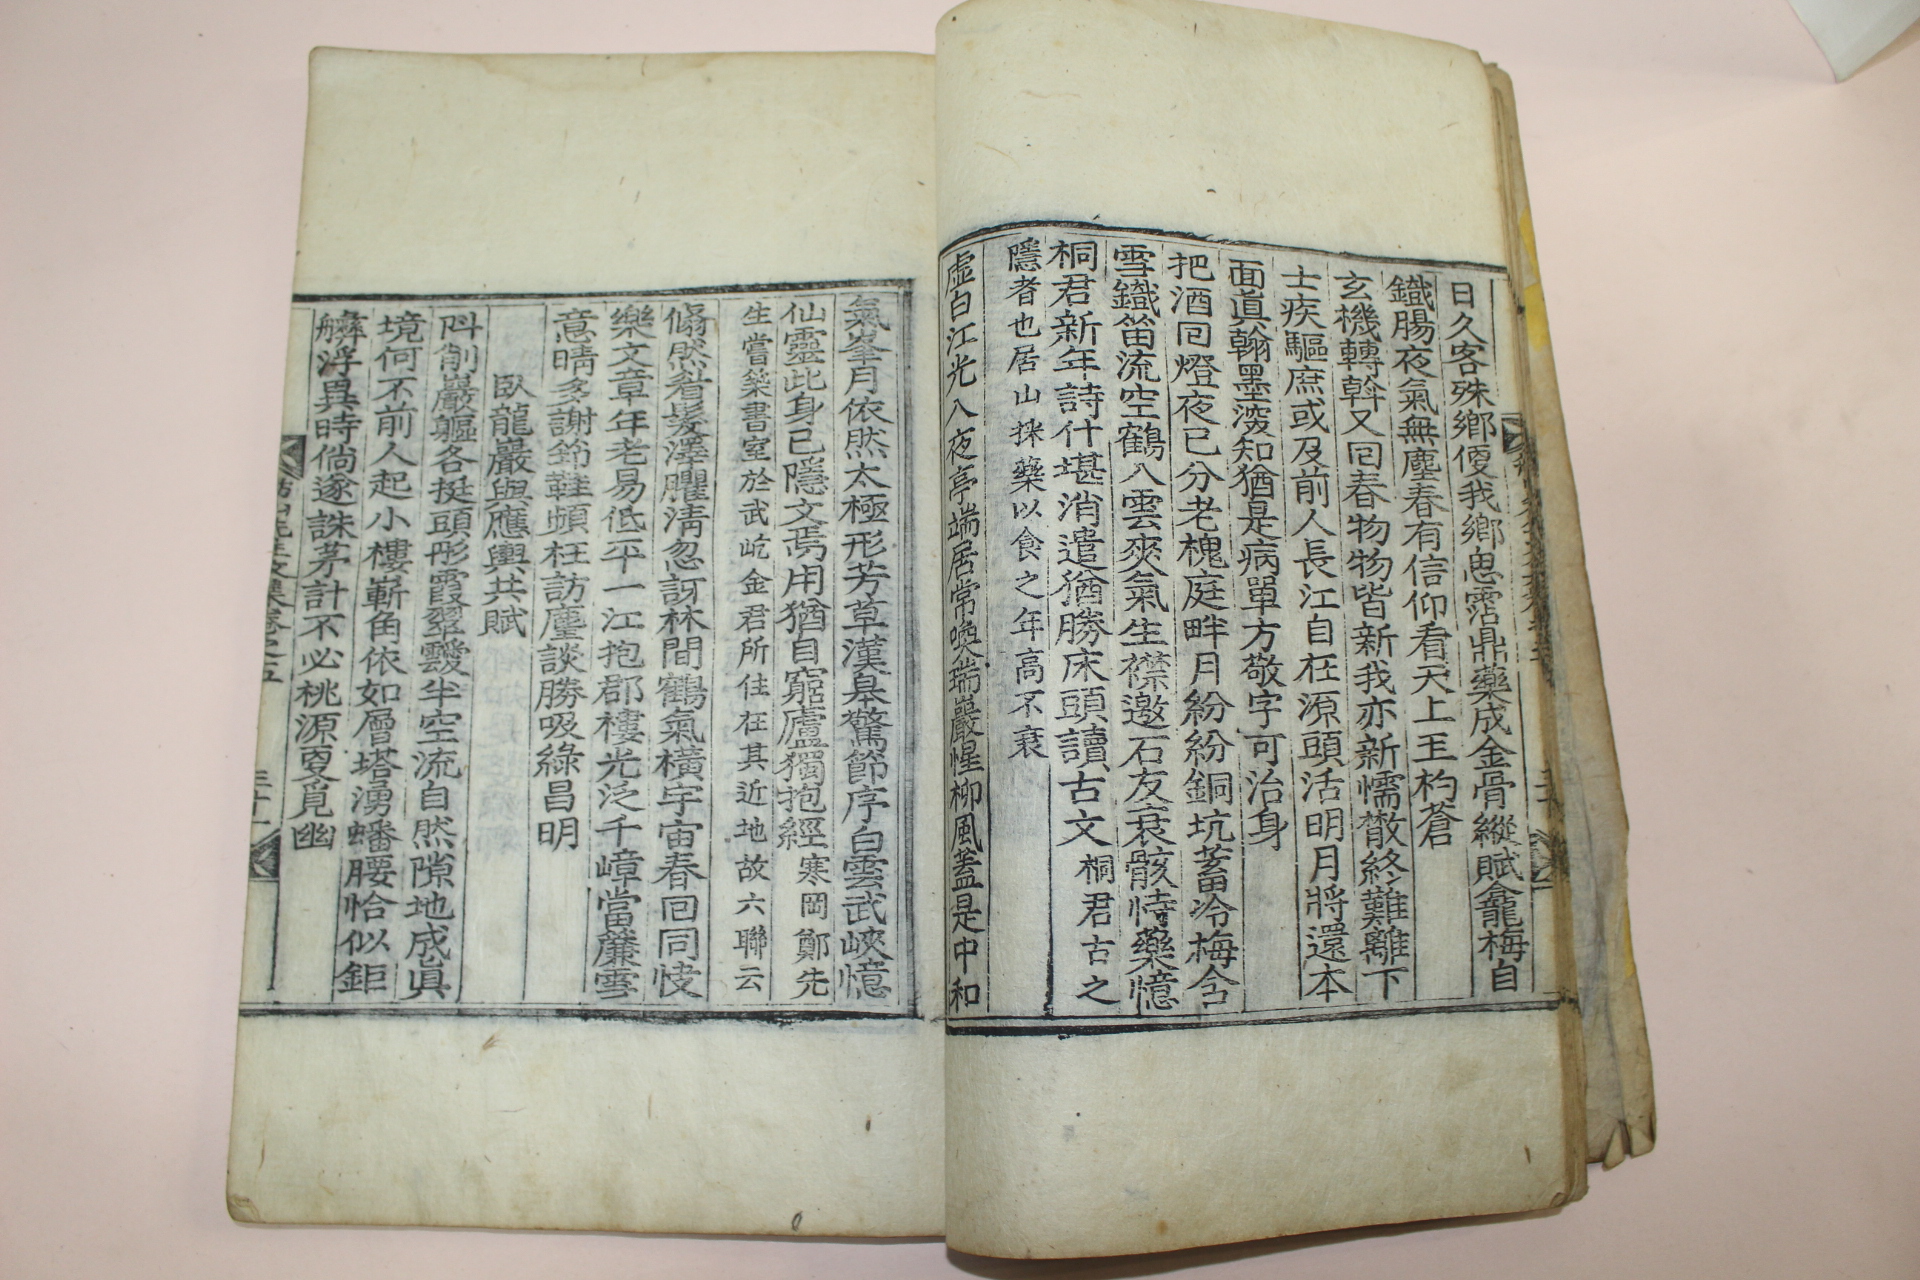 日久客殊鄕便我鄕思霑鼎藥成金骨縱賦龕龍梅自
鐵腸夜氣無塵春有信仰看天上玉杓蒼
玄機轉斡又回春物物皆新我亦新懦憋終難離下
士疾驅庶或及前人長江自在源頭活明月將還本
面眞翰墨深知猶是病單方敬字可治身
把酒回燈夜已分老槐庭畔月紛紛銅坑蓄冷梅含
雪鐵笛流空鶴入雲爽氣生襟邀石友衰骸恃藥憶
桐君新年詩什堪消遣猶勝床頭讀古文桐君古之
隱者也居山採藥以食之年高不衰
虛白江光入夜亭端居常喚瑞巖惺柳風蓋是中和
氣峯月依然太極形芳草漢皐驚節序白雲武峽憶
仙靈此身已隱文焉用猶自窮廬獨抱經寒岡鄭先
生嘗築書室於武屹金君所住在其近地故六聯云
翛然眉髮澤臞淸忽訝林間鶴氣橫宇宙春回同快
樂文章年老易低平一江抱郡樓光泛千嶂當簾雪
意晴多謝筇鞋頻枉訪麈談勝吸綠昌明
臥龍巖與應輿共賦
斗削巖軀各挺頭彤霞翠靉半空流自然隙地成眞
境何不前人起小樓嶄角依如層塔湧蟠腰恰似鉅
浮異時倘遂誅茅計不必桃源更覓幽
先生文集卷之五
三十一